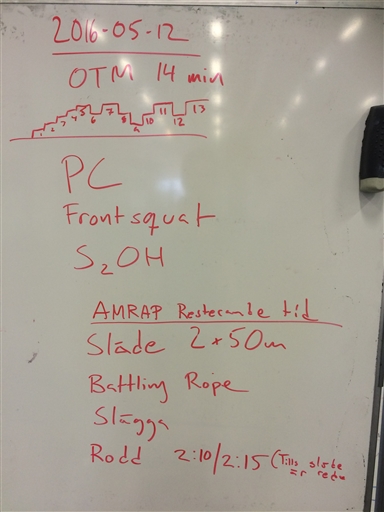 2016-05-12
OTM 14 min
1 2 3 4 5 6 7 8 9 10 11 12 13
PC
Frontsquat
S2OH
AMRAP Resterande tid
Släde 2x50m
Battling Rope
Slägga
Rodd 2:10/2:15 (Tills släde
är redo